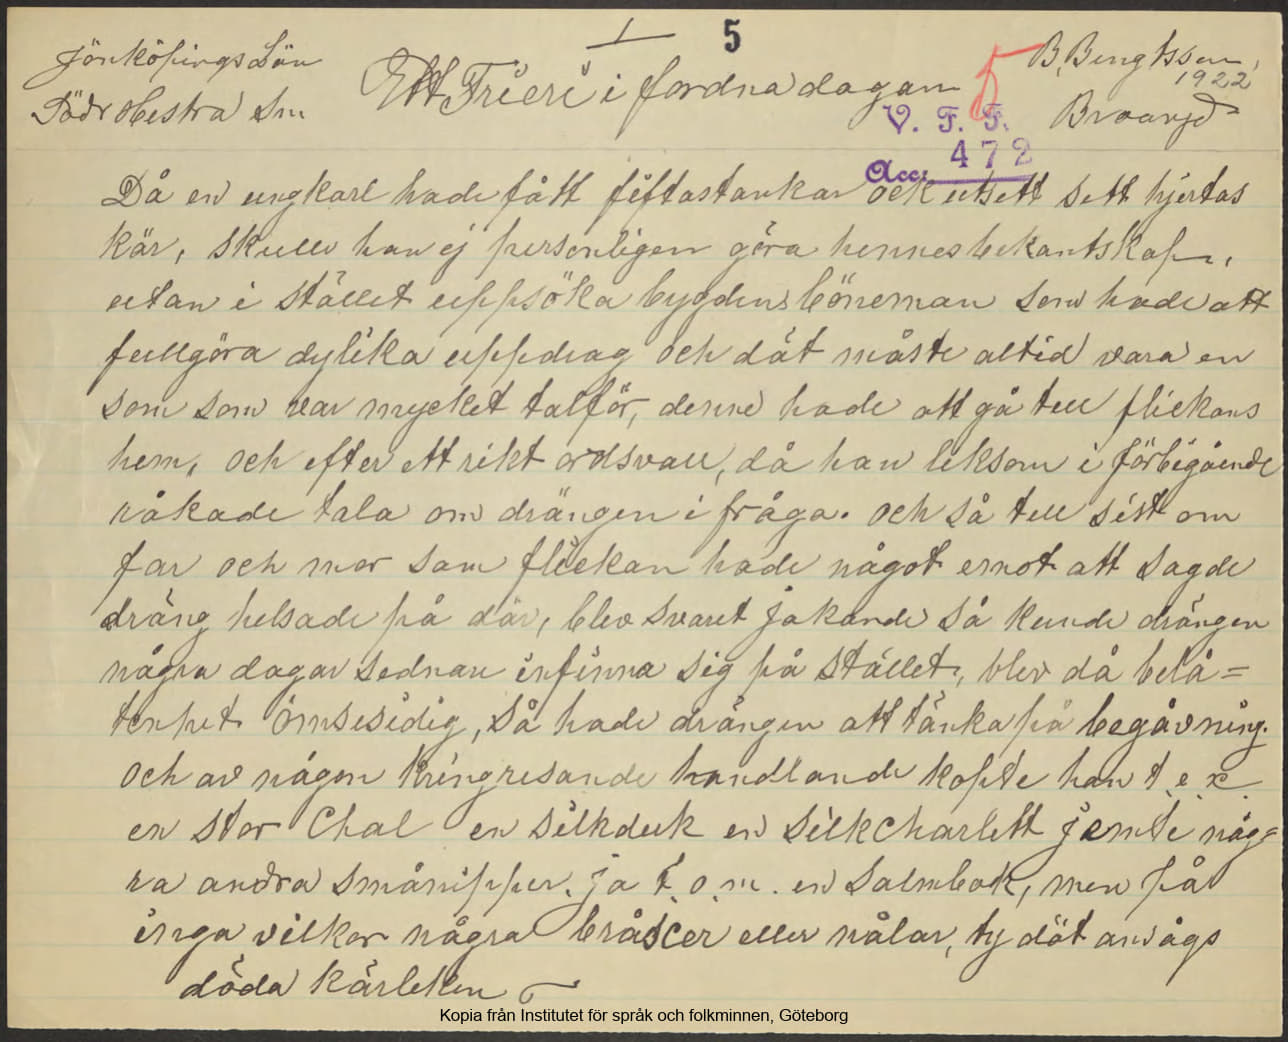 1
5
Jönköpings Län
Ett Frieri i fordna dagar
5
B. Bengtsson,
1922
Södr Hestra Sm
Broaryd
V. F. F.
Acc. 472
Då en ungkarl hade fått jiftastankar ock utsett sitt hjertas
kär, skulle han ej personligen göra hennes bekantskap,
utan i stället uppsöka bygdens böneman som hade att
fullgöra dylika uppdrag och dät måste altid vara en
som som var mycket talför, denne hade att gå till flickans
hem, och efter ett rikt ordsvall, då han liksom i förbigående
råkade tala om drängen i fråga. och så till sist om
far och mor sam flickan hade något emot att sagde
dräng helsade på där, blev svaret jakande så kunde drängen
några dagar sednare infinna sig på stället, blev då belå=
tenhet ömsesidig, så hade drängen att tänka på begåvning.
och av någon kringresande handlande köpte han t. e. x.
en stor Chal en silkduk en silkcharlett jemte någ=
ra andra smånipper. ja t. o. m. en salmbok, men på
inga vilkor några bråscer eller nålar, ty dät ansågs
döda kärleken
Kopia från Institutet för språk och folkminnen, Göteborg